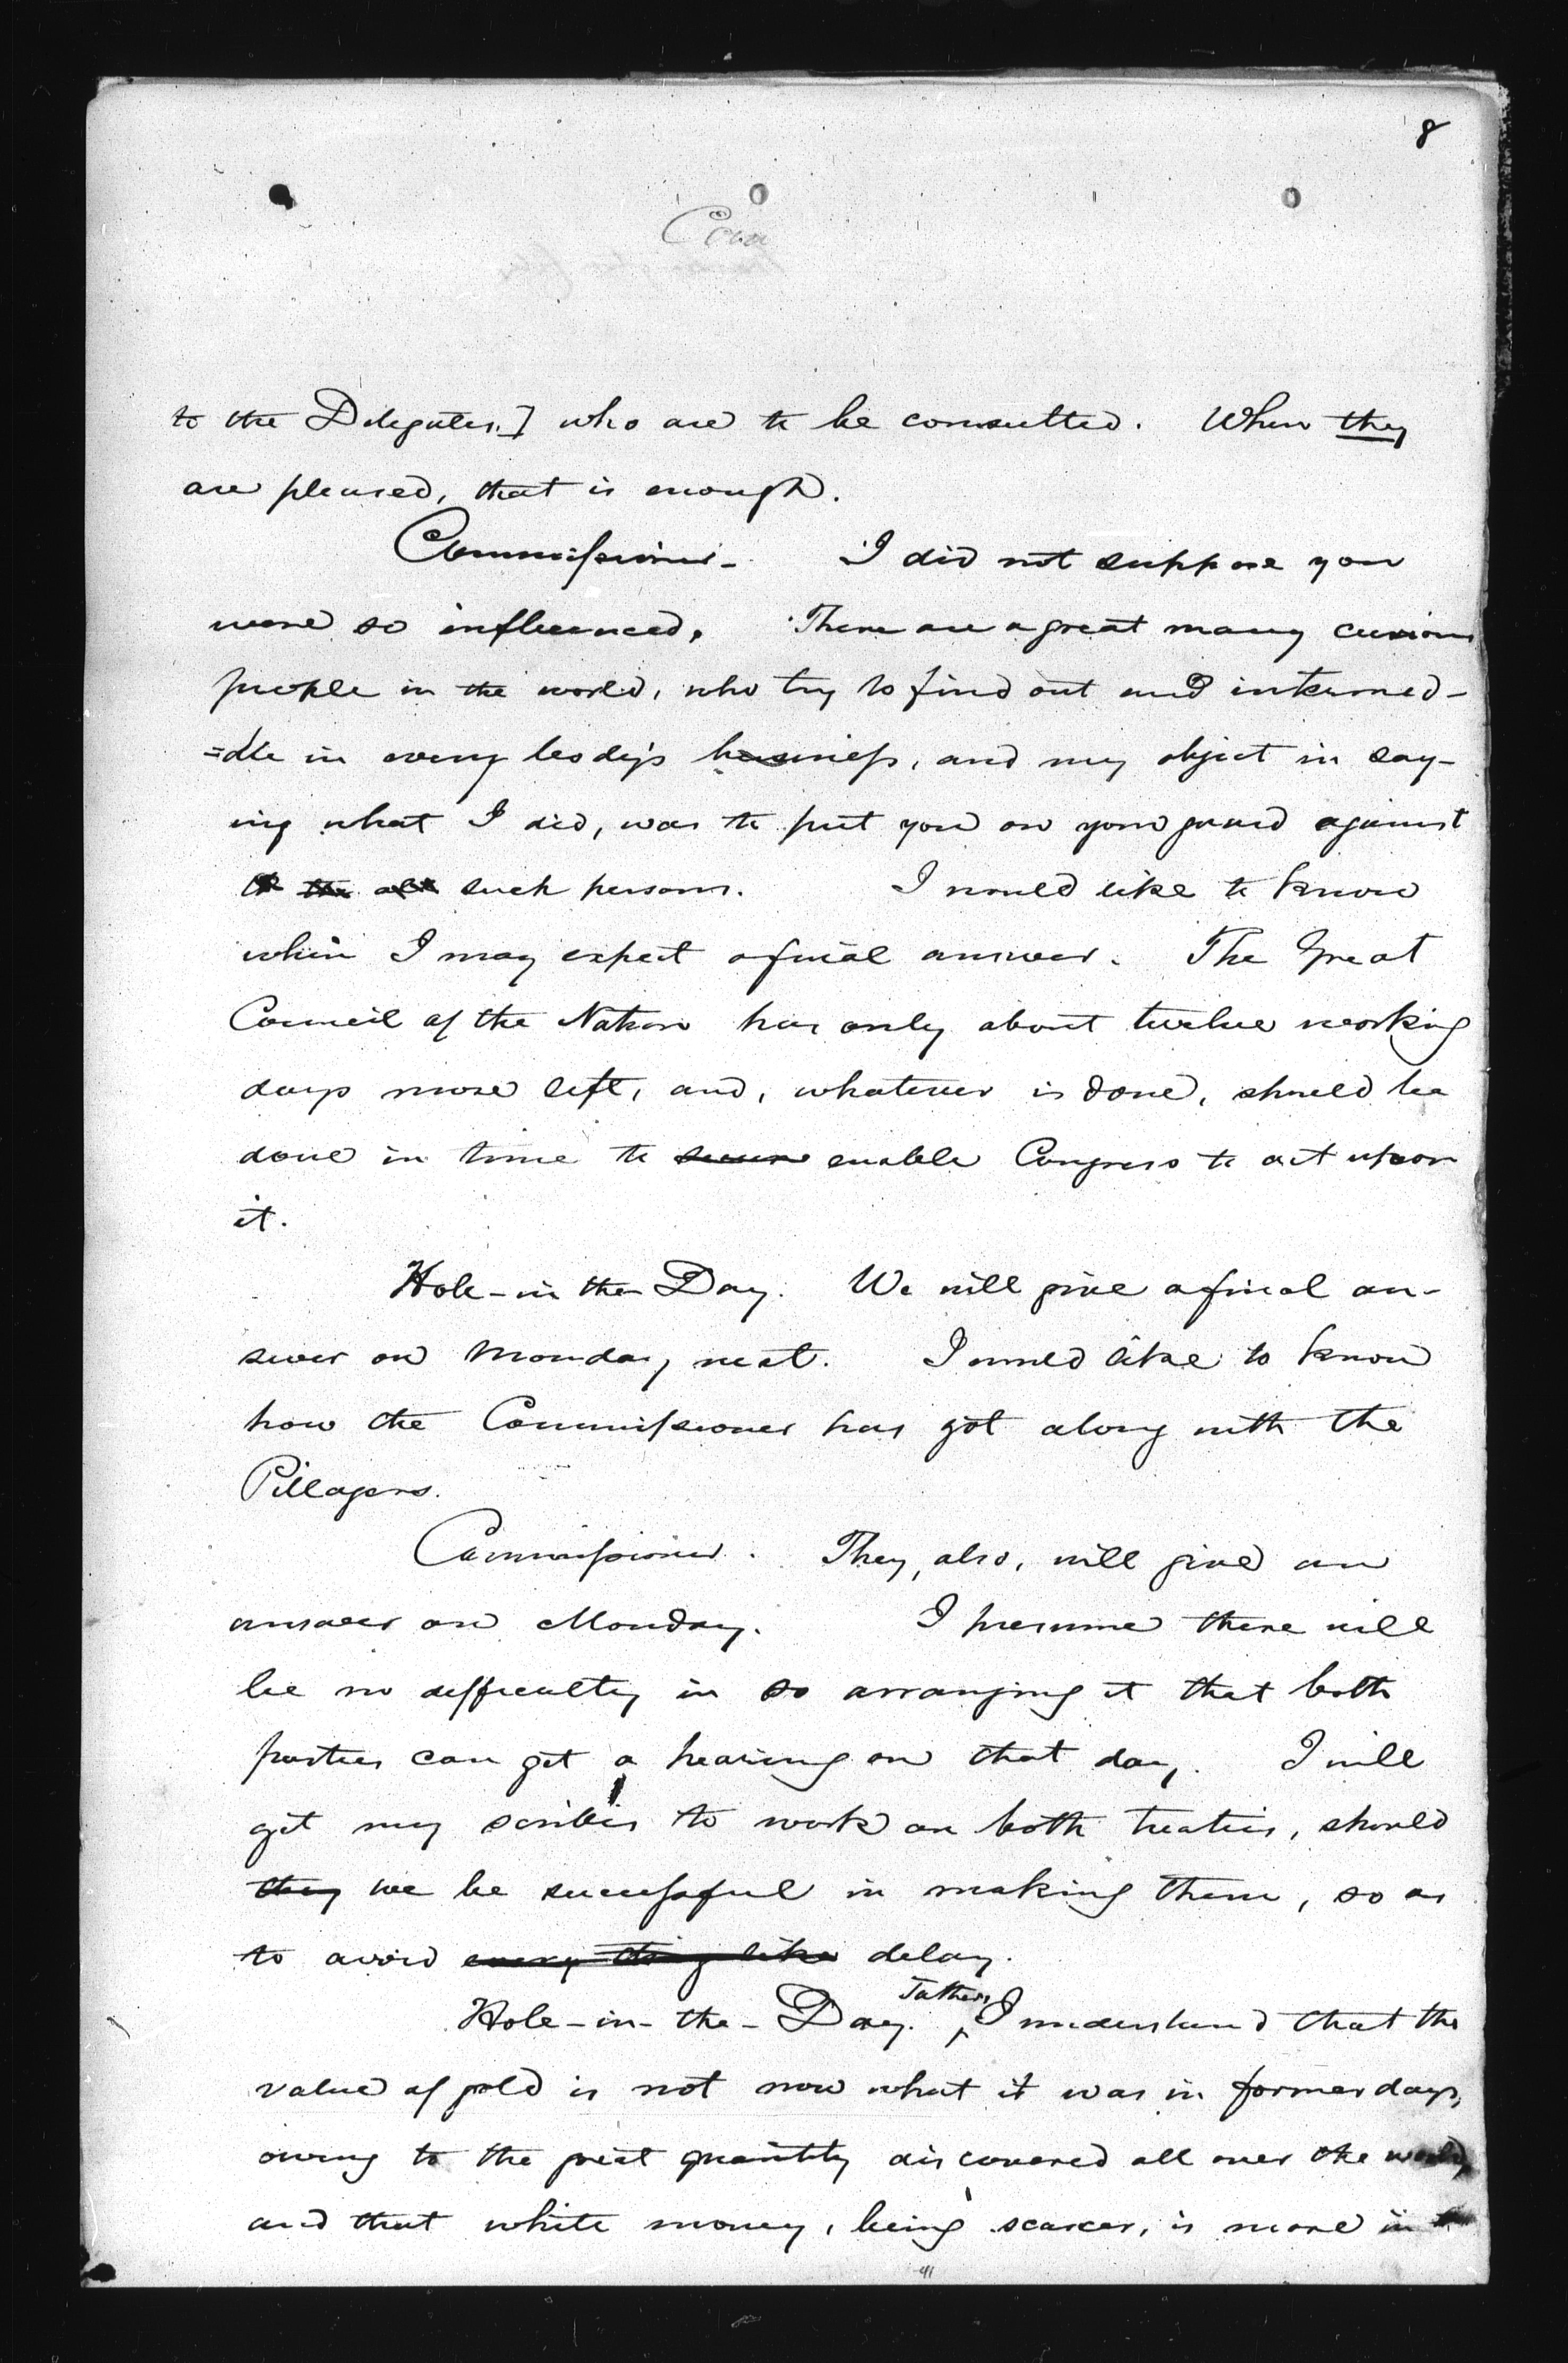 8
to the Delegates.] who are to be consulted. When they
are pleased, that is enough.
Commissioner- I did not suppose you
were so influenced. There are a great many curious
people in the world, who try to find out and intermed-
=dle in every body's business, and my object in say-
ing what I did, was to put you on your guard against
such persons. I would like to know
when I may expect a final answer. The Great
Council of the Nation has only about twelve working
days more left, and, whatever is done, should be
done in time to secure enable Congress to act upon
it.
Hole-in the Day. We will give a final an-
swer on Monday next. I would like to know
how the Commissioner has got along with the
Pillagers.
Commissioner. They, also, will give an
answer on Monday. I presume there will
be no difficulty in so arranging it that both
parties can get a hearing on that day. I will
get my scribes to work on both treaties, should
they we be successful in making them, so as
to avoid every thing like delay.
Hole-in-the-Day. Father, I understand that the
value of gold is not now what it was in former days,
owing to the great quantity discovered all over the world,
and that white money, being scarcer, is more in
41